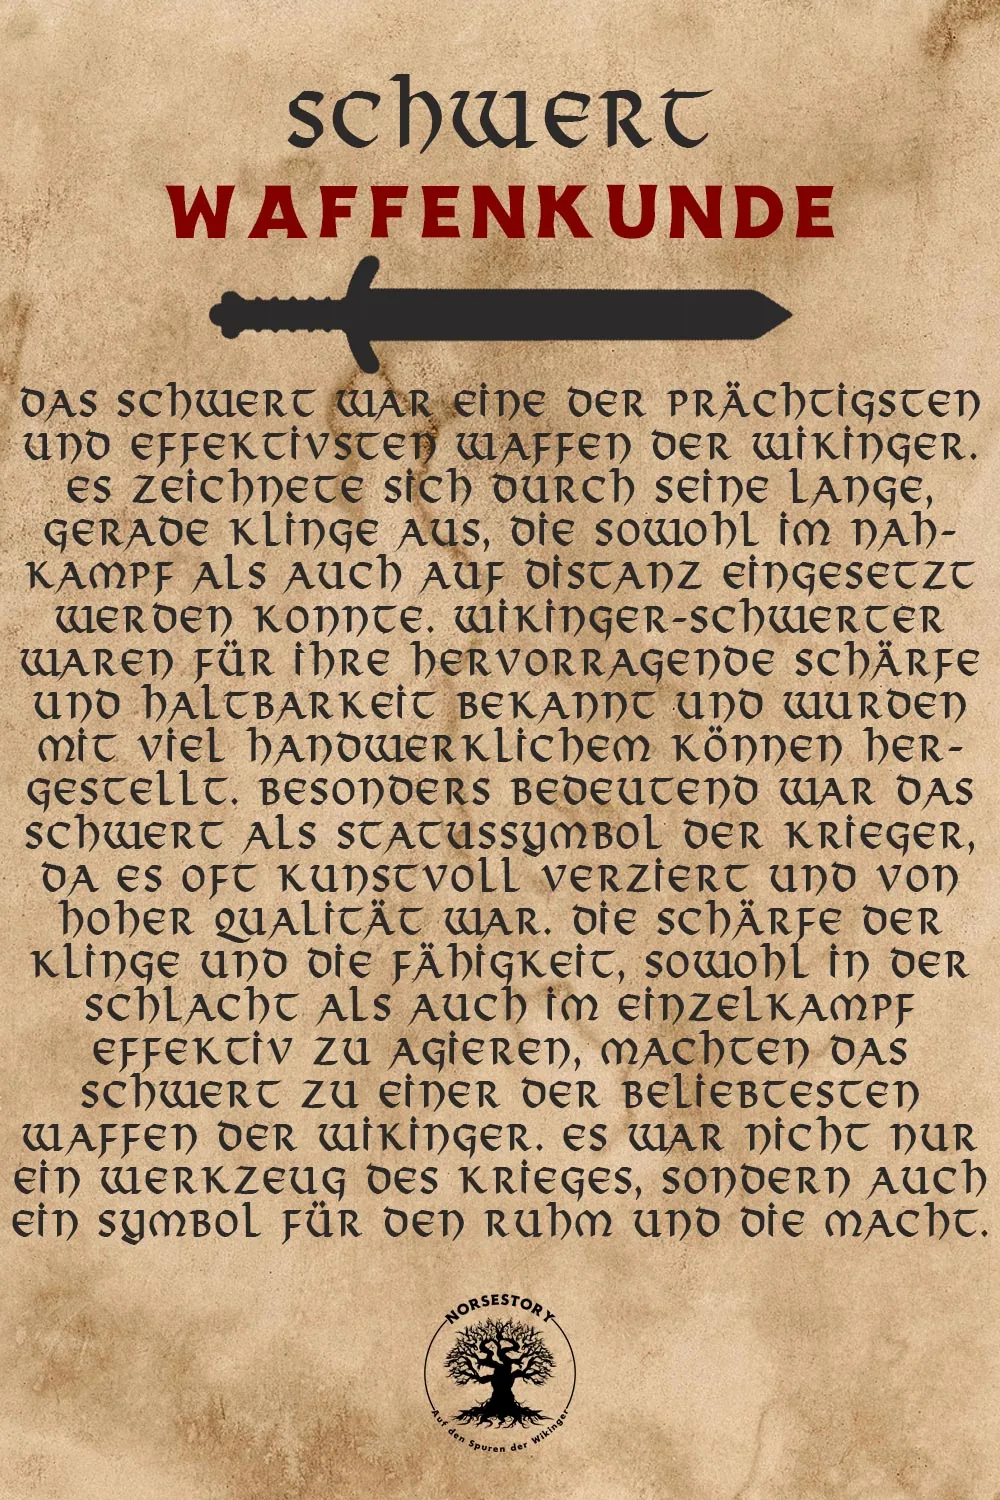 Schwert
WAFFENKUNDE
Das Schwert war eine der prächtigsten
und effektivsten Waffen der Wikinger.
Es zeichnete sich durch seine lange,
gerade Klinge aus, die sowohl im Nah-
kampf als auch auf Distanz eingesetzt
werden konnte. Wikinger-Schwerter
waren für ihre hervorragende Schärfe
und Haltbarkeit bekannt und wurden
mit viel handwerklichem Können her-
gestellt. Besonders bedeutend war das
Schwert als Statussymbol der Krieger,
da es oft kunstvoll verziert und von
hoher Qualität war. Die Schärfe der
Klinge und die Fähigkeit, sowohl in der
Schlacht als auch im Einzelkampf
effektiv zu agieren, machten das
Schwert zu einer der beliebtesten
Waffen der Wikinger. Es war nicht nur
ein Werkzeug des Krieges, sondern auch
ein Symbol für den Ruhm und die Macht.
NORSESTORY
Auf den Spuren der Wikinger